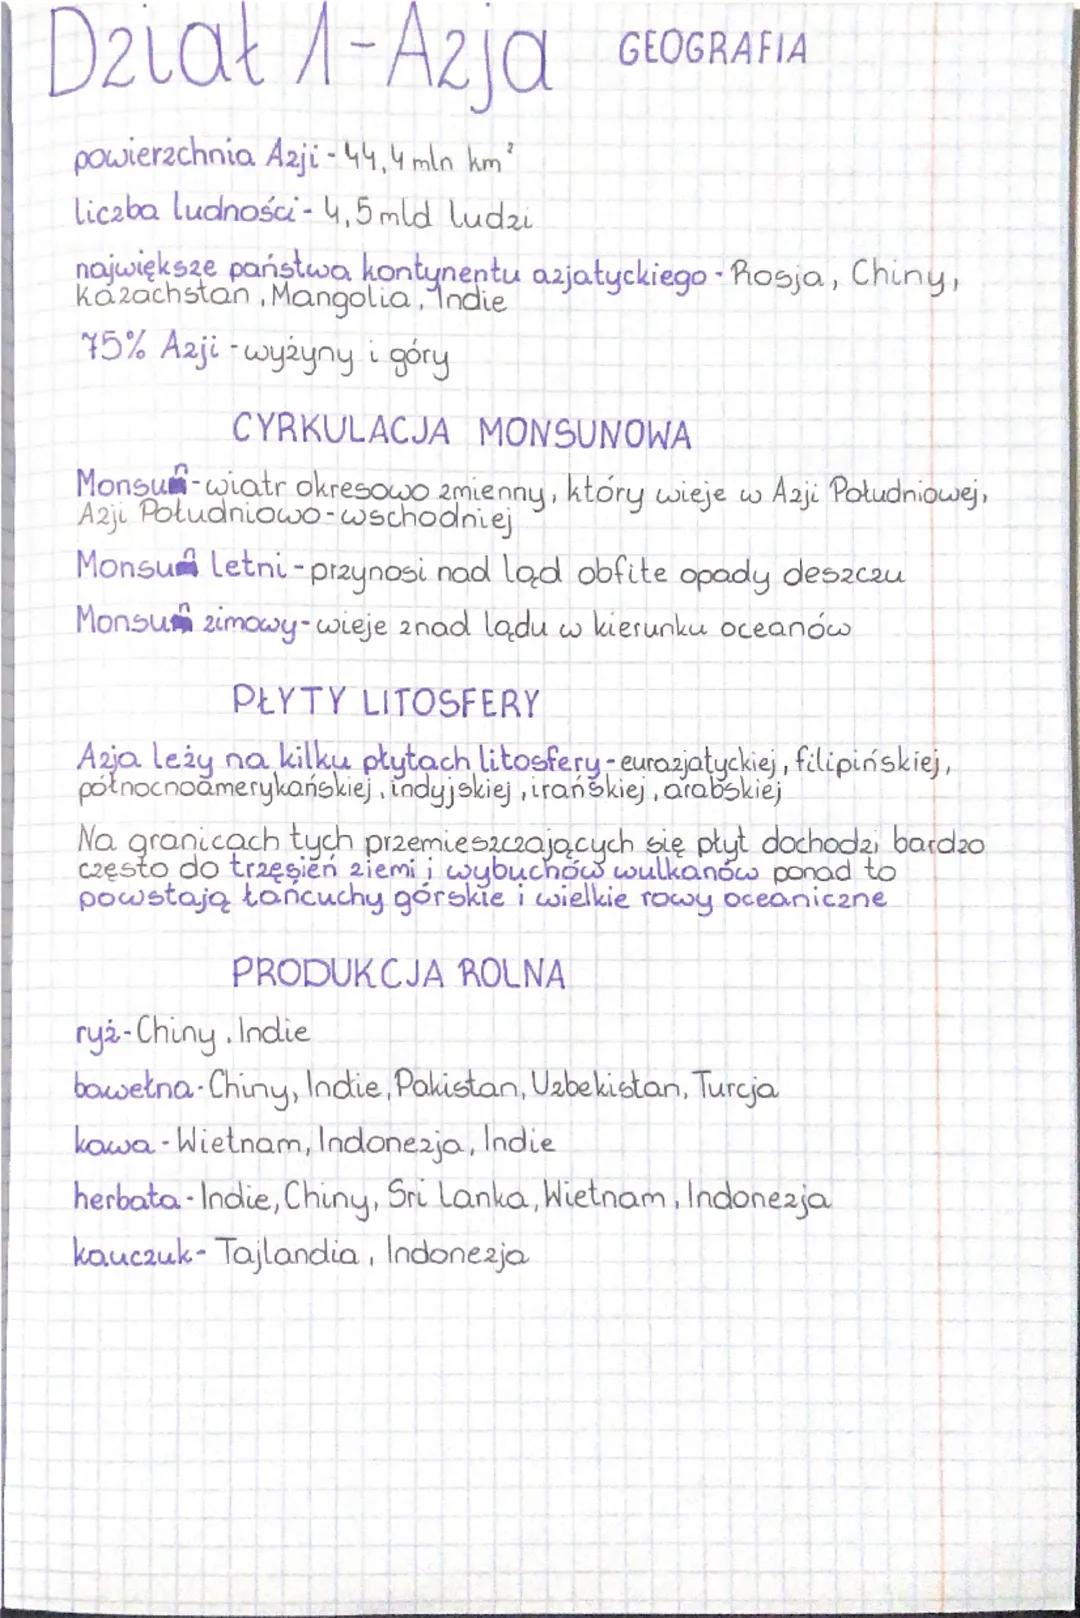 Dział 1-Azja GEOGRAFIA
powierzchnia Azji - 44,4 mln km²
liczba ludności - 4,5 mld ludzi
największe państwa kontynentu azjatyckiego - Rosja, Chiny,
Kazachstan, Mangolia, Indie
75% Azji - wyżyny i góry
CYRKULACJA MONSUNOWA
Monsun - wiatr okresowo zmienny, który wieje w Azji Południowej,
Azji Południowo-wschodniej
Monsun letni - przynosi nad ląd obfite opady deszczu
Monsun zimowy - wieje znad lądu w kierunku oceanów
PŁYTY LITOSFERY
Azja leży na kilku płytach litosfery - eurazjatyckiej, filipińskiej,
północnoamerykańskiej, indyjskiej, irańskiej, arabskiej
Na granicach tych przemieszczających się płyt dochodzi bardzo
często do trzęsień ziemi i wybuchów wulkanów ponad to
powstają łańcuchy górskie i wielkie rowy oceaniczne
PRODUKCJA ROLNA
ryż - Chiny, Indie
bawełna - Chiny, Indie, Pakistan, Uzbekistan, Turcja
kawa - Wietnam, Indonezja, Indie
herbata - Indie, Chiny, Sri Lanka, Wietnam, Indonezja
kauczuk - Tajlandia, Indonezja